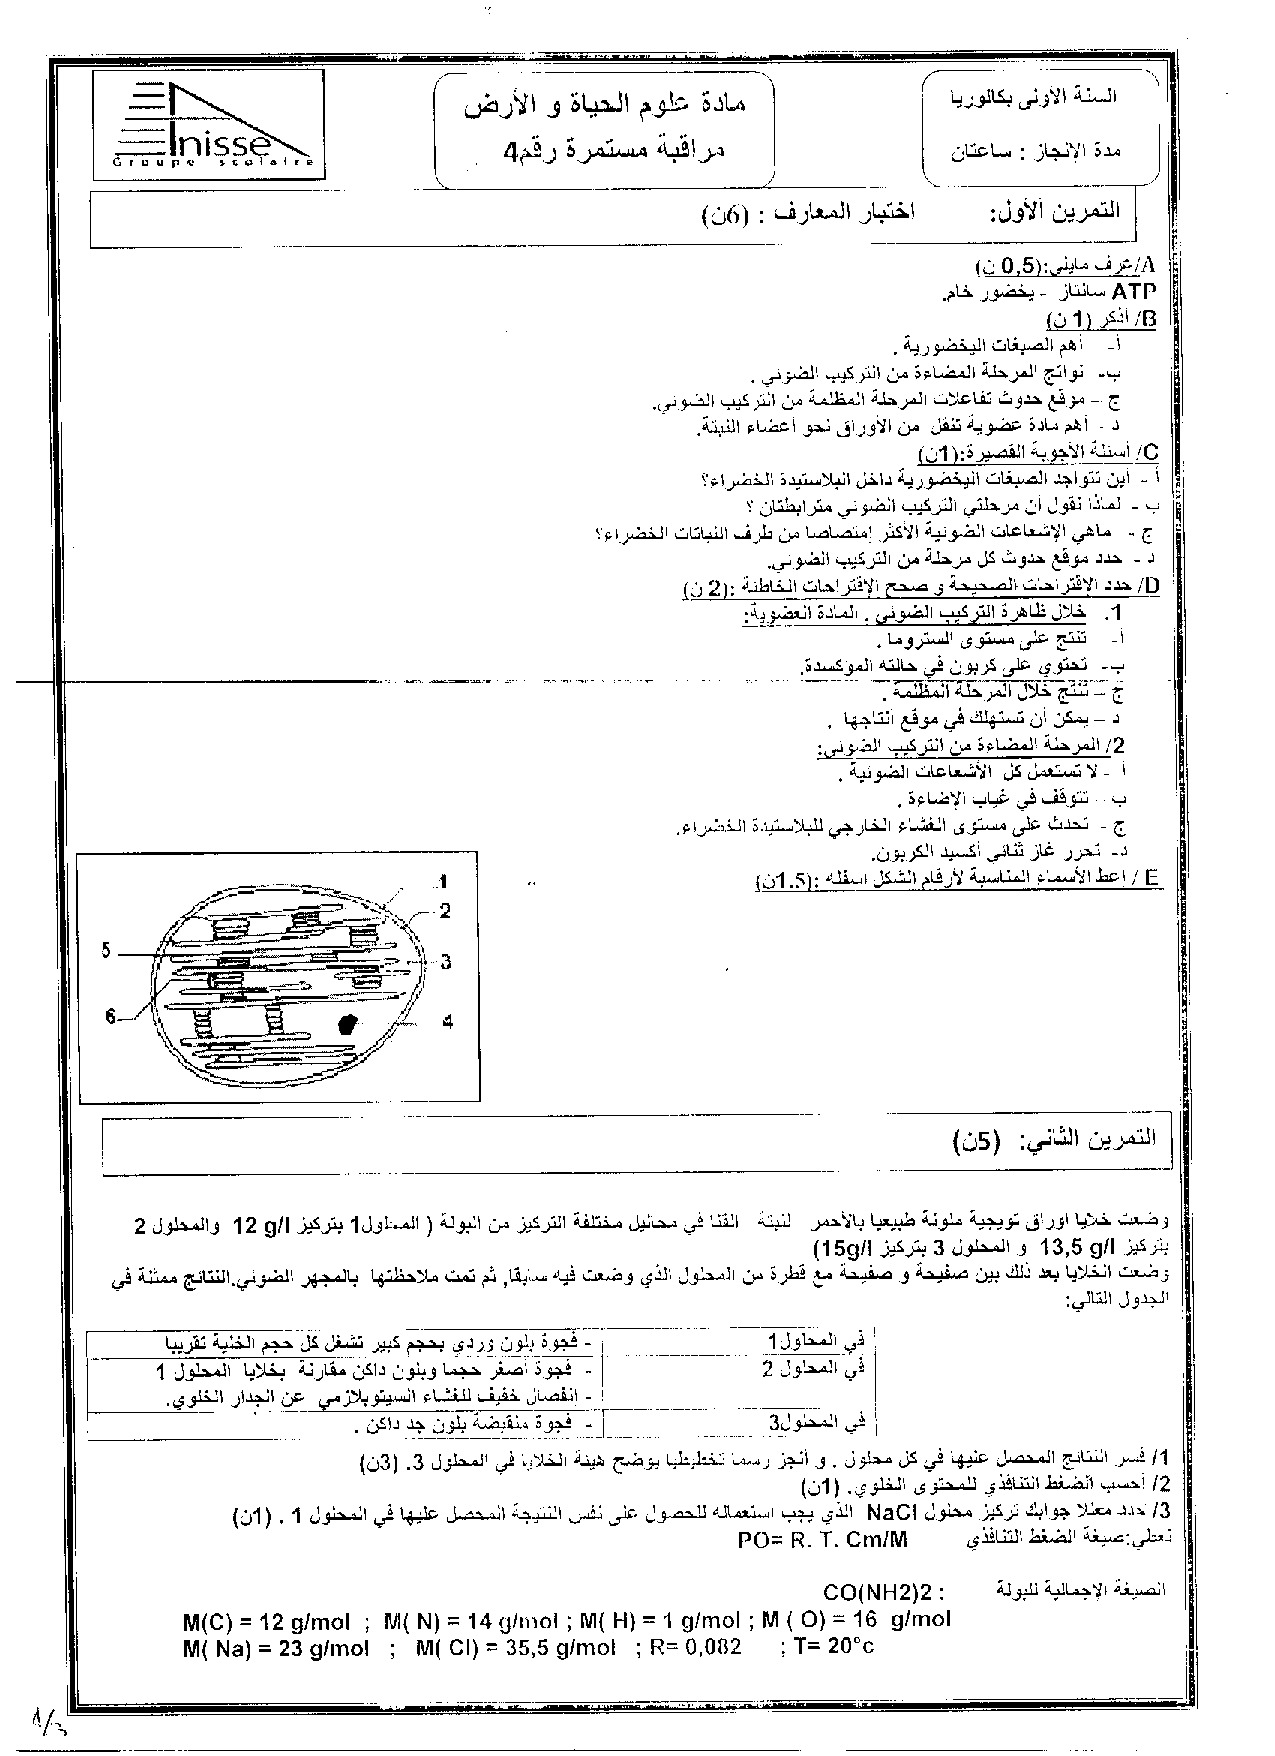 السنة الأولى بكالوريا
مدة الانجاز : ساعتان
مادة علوم الحياة و الأرض
مراقبة مستمرة رقم4
Anisse
Groupe scolaire
التمرين الأول: اختبار المعارف : (6ن)
A/عرف مايلي:(0,5 ن)
ATP سانتاز - يخضور خام.
B/ أذكر (1 ن)
أ- أهم الصبغات اليخضورية .
ب- نواتج المرحلة المضاءة من التركيب الضوئي .
ج – موقع حدوث تفاعلات المرحلة المظلمة من التركيب الضوئي.
د - أهم مادة عضوية تنقل من الأوراق نحو أعضاء النبتة.
C/ أسئلة الأجوبة القصيرة:(1ن)
أ - أين تتواجد الصبغات اليخضورية داخل البلاستيدة الخضراء؟
ب - لماذا نقول أن مرحلتي التركيب الضوئي مترابطتان ؟
ج - ماهي الإشعاعات الضوئية الأكثر إمتصاصا من طرف النباتات الخضراء؟
د - حدد موقع حدوث كل مرحلة من التركيب الضوئي.
D/ حدد الاقتراحات الصحيحة و صحح الإقتراحات الخاطئة :(2 ن)
1. خلال ظاهرة التركيب الضوئي , المادة العضوية:
أ- تنتج على مستوى الستروما .
ب- تحتوي على كربون في حالته الموكسدة.
ج – تنتج خلال المرحلة المظلمة .
د – يمكن أن تستهلك في موقع انتاجها .
2/ المرحلة المضاءة من التركيب الضوئي:
أ - لا تستعمل كل الأشعاعات الضوئية .
ب - تتوقف في غياب الإضاءة .
ج - تحدث على مستوى الغشاء الخارجي للبلاستيدة الخضراء.
د- تحرر غاز ثنائي أكسيد الكربون.
E / اعط الأسماء المناسبة لأرقام الشكل اسفله :(1.5ن)
1
2
5
3
6
4
التمرين الثاني: (5ن)
وضعت خلايا اوراق تويجية ملونة طبيعيا بالأحمر لنبتة القنا في محاليل مختلفة التركيز من البولة ( المحلول1 بتركيز 12 g/l والمحلول 2
بتركيز 13,5 g/l و المحلول 3 بتركيز 15g/l)
وضعت الخلايا بعد ذلك بين صفيحة و صفيحة مع قطرة من المحلول الذي وضعت فيه سابقا, ثم تمت ملاحظتها بالمجهر الضوئي.النتائج ممثلة في
الجدول التالي:
في المحلول1 - فجوة بلون وردي بحجم كبير تشغل كل حجم الخلية تقريبا
في المحلول 2 - فجوة أصغر حجما وبلون داكن مقارنة بخلايا المحلول 1
- انفصال خفيف للغشاء السيتوبلازمي عن الجدار الخلوي.
في المحلول3 - فجوة منقبضة بلون جد داكن .
1/ فسر النتائج المحصل عليها في كل محلول . و أنجز رسما تخطيطيا يوضح هيئة الخلايا في المحلول 3. (3ن)
2/ أحسب الضغط التنافذي للمحتوى الخلوي. (1ن)
3/ حدد معللا جوابك تركيز محلول NaCl الذي يجب استعماله للحصول على نفس النتيجة المحصل عليها في المحلول 1 . (1ن)
نعطي:صيغة الضغط التنافذي PO= R. T. Cm/M
الصيغة الاجمالية للبولة : CO(NH2)2
M(C) = 12 g/mol ; M( N) = 14 g/mol ; M( H) = 1 g/mol ; M ( O) = 16 g/mol
M( Na) = 23 g/mol ; M( Cl) = 35,5 g/mol ; R= 0,082 ; T= 20°c
1/3